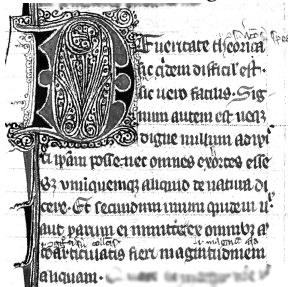 De ueritate theorica
sic qͥdem difficil' est
sic uero facilis. Sig
num autem est neqꝫ
digne nullum adipi
sci ipam posse nec omnes exortes esse
sꝫ unūquēqꝫ aliquid de natura di
cere. Et secundum unum quidem
aut parum ei immittere omnibꝫ
coarticulatis fieri magnitudinem
aliquam.